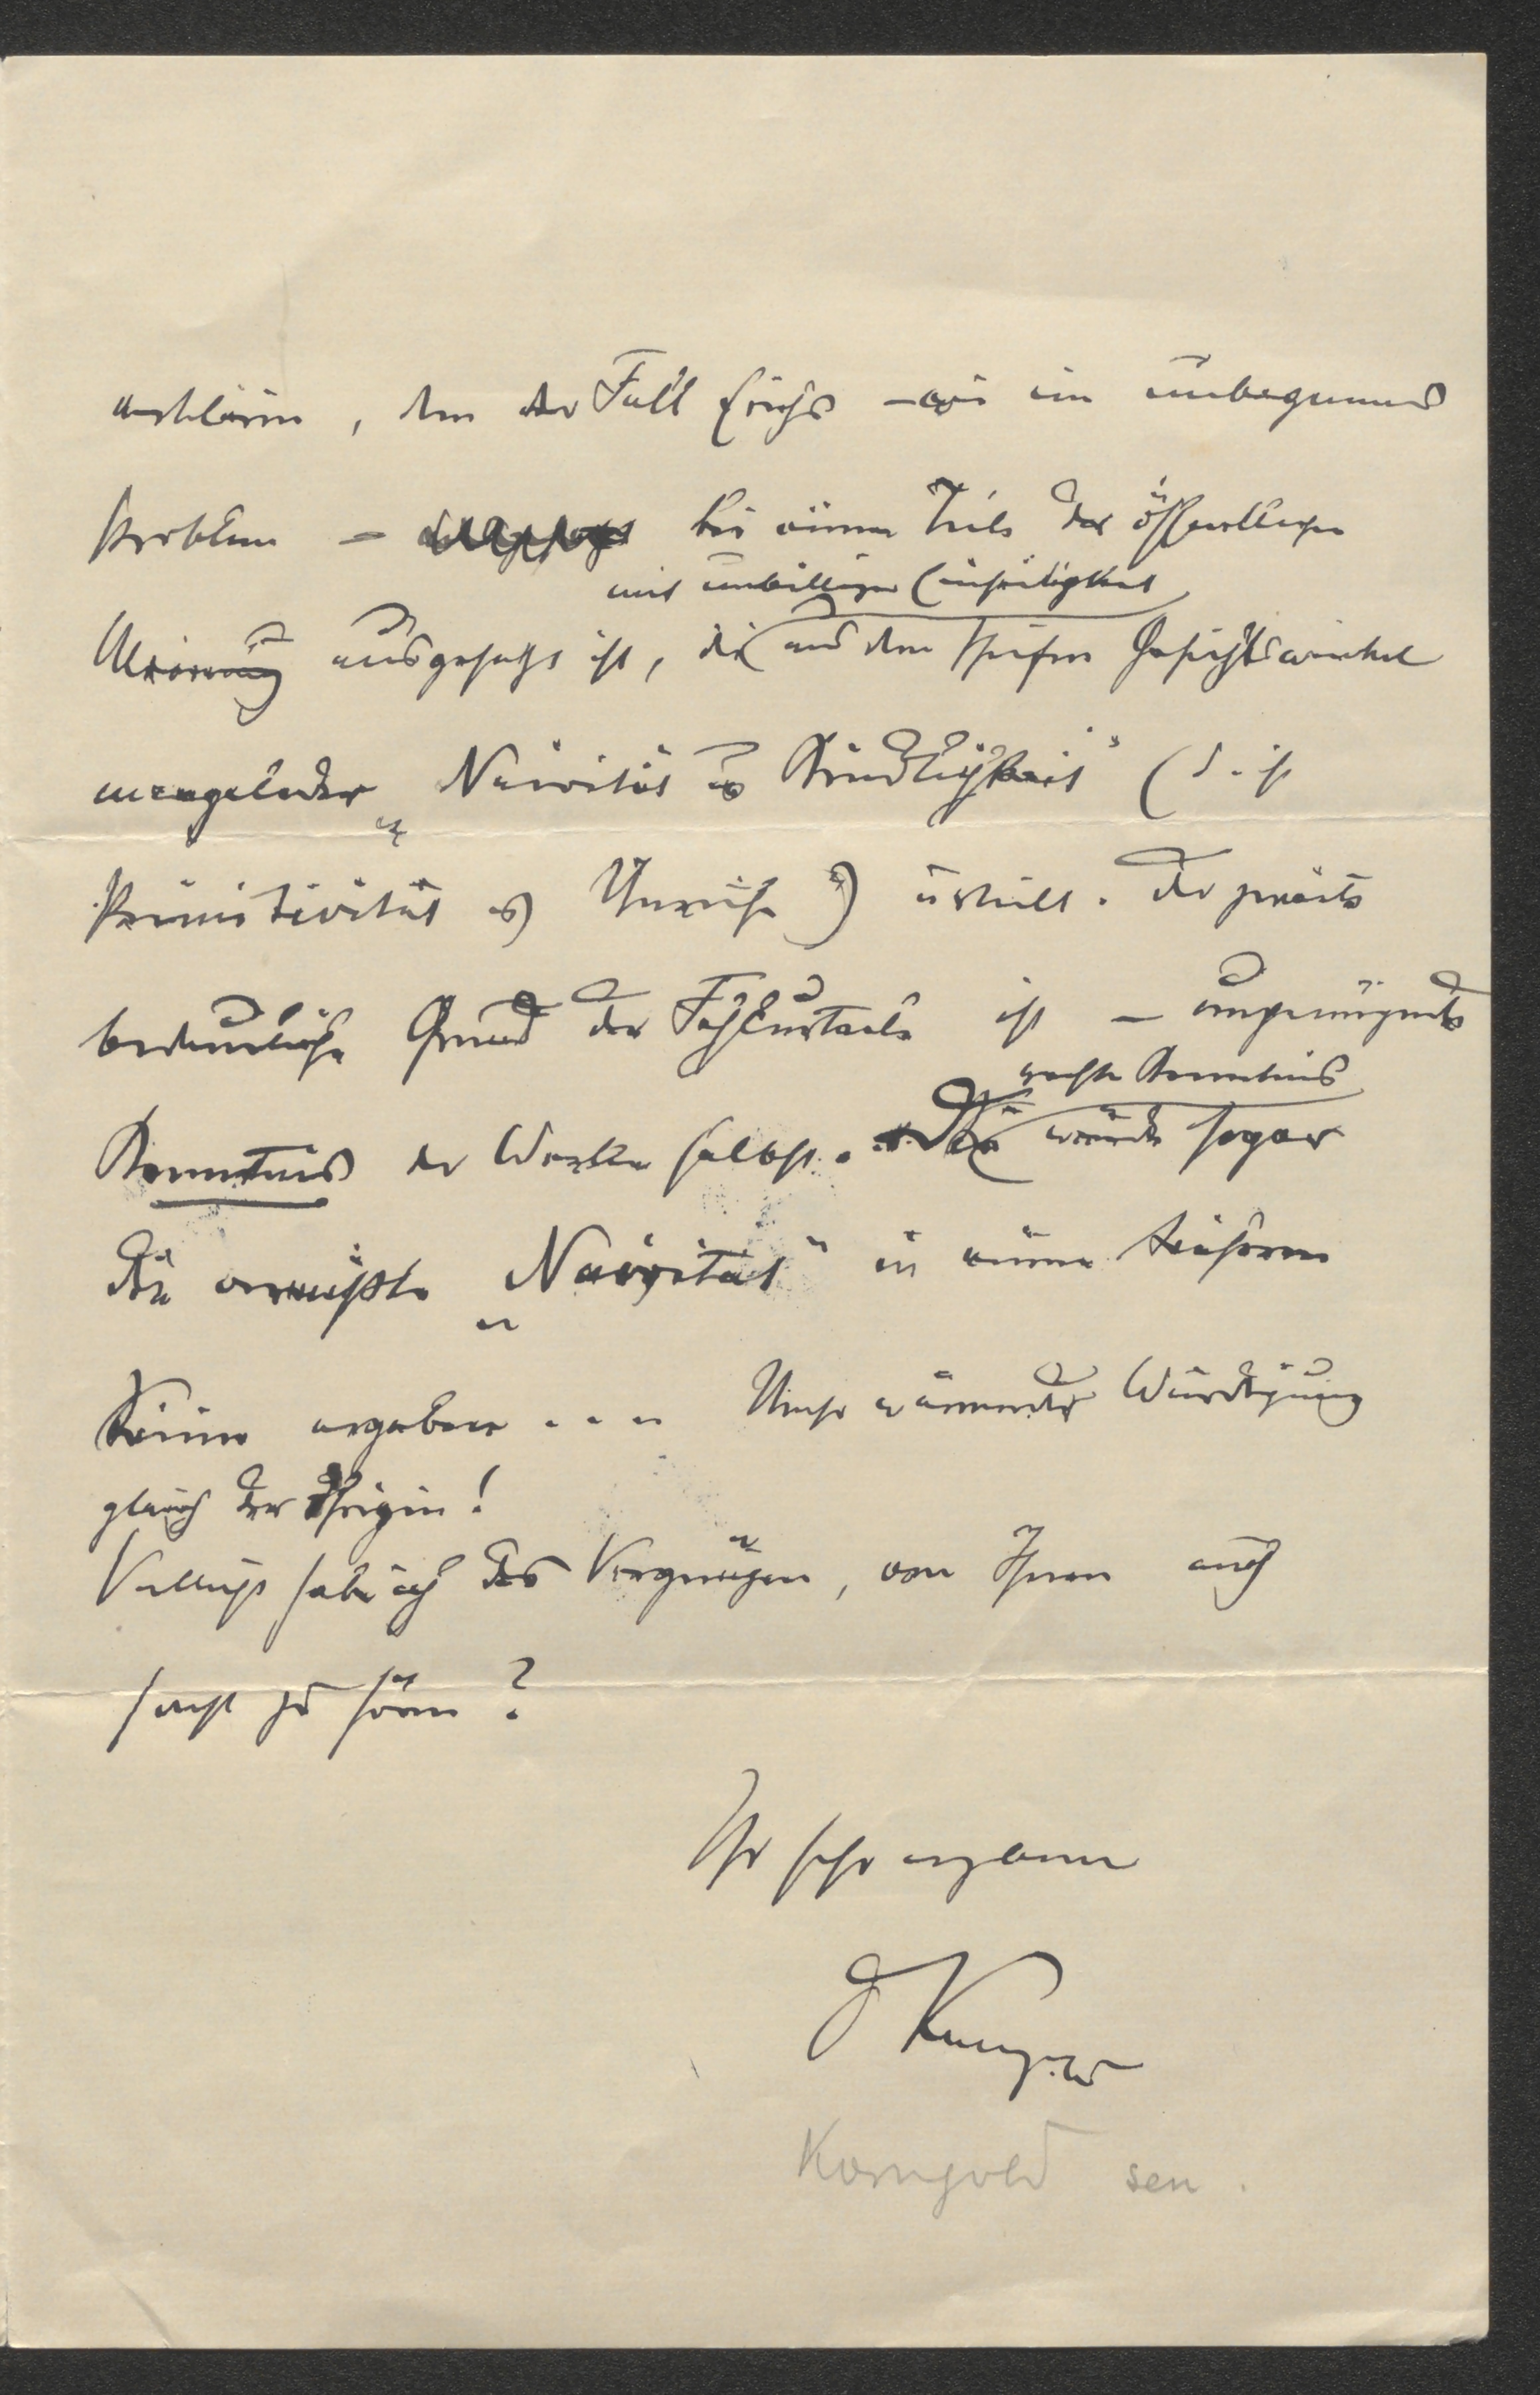 erklären, dem der Fall Erichs – wie ein unbequemes
Problem – bei einem Teile der öffentlichen
mit unbilliger Einseitigkeit
Meinung ausgesetzt ist, die aus dem schiefen Gesichtswinkel
mangelnder „Naivität u Kindlichkeit“ (d. i.
Primitivität u Unreife) urteilt. Der zweite
bedauerliche Grund der Fehlurteile ist – ungenügende
rechte Kenntnis
Kenntnis der Werke selbst. Die würde sogar
die vermißte „Naivität“ in einem tieferen
Sinne ergeben . . . . Umso wärmender Würdigung
gleich der Ihrigen!
Vielleicht habe ich das Vergnügen, von Ihnen auch
sonst zu hören?
Ihr sehr ergebener
Korngold sen.